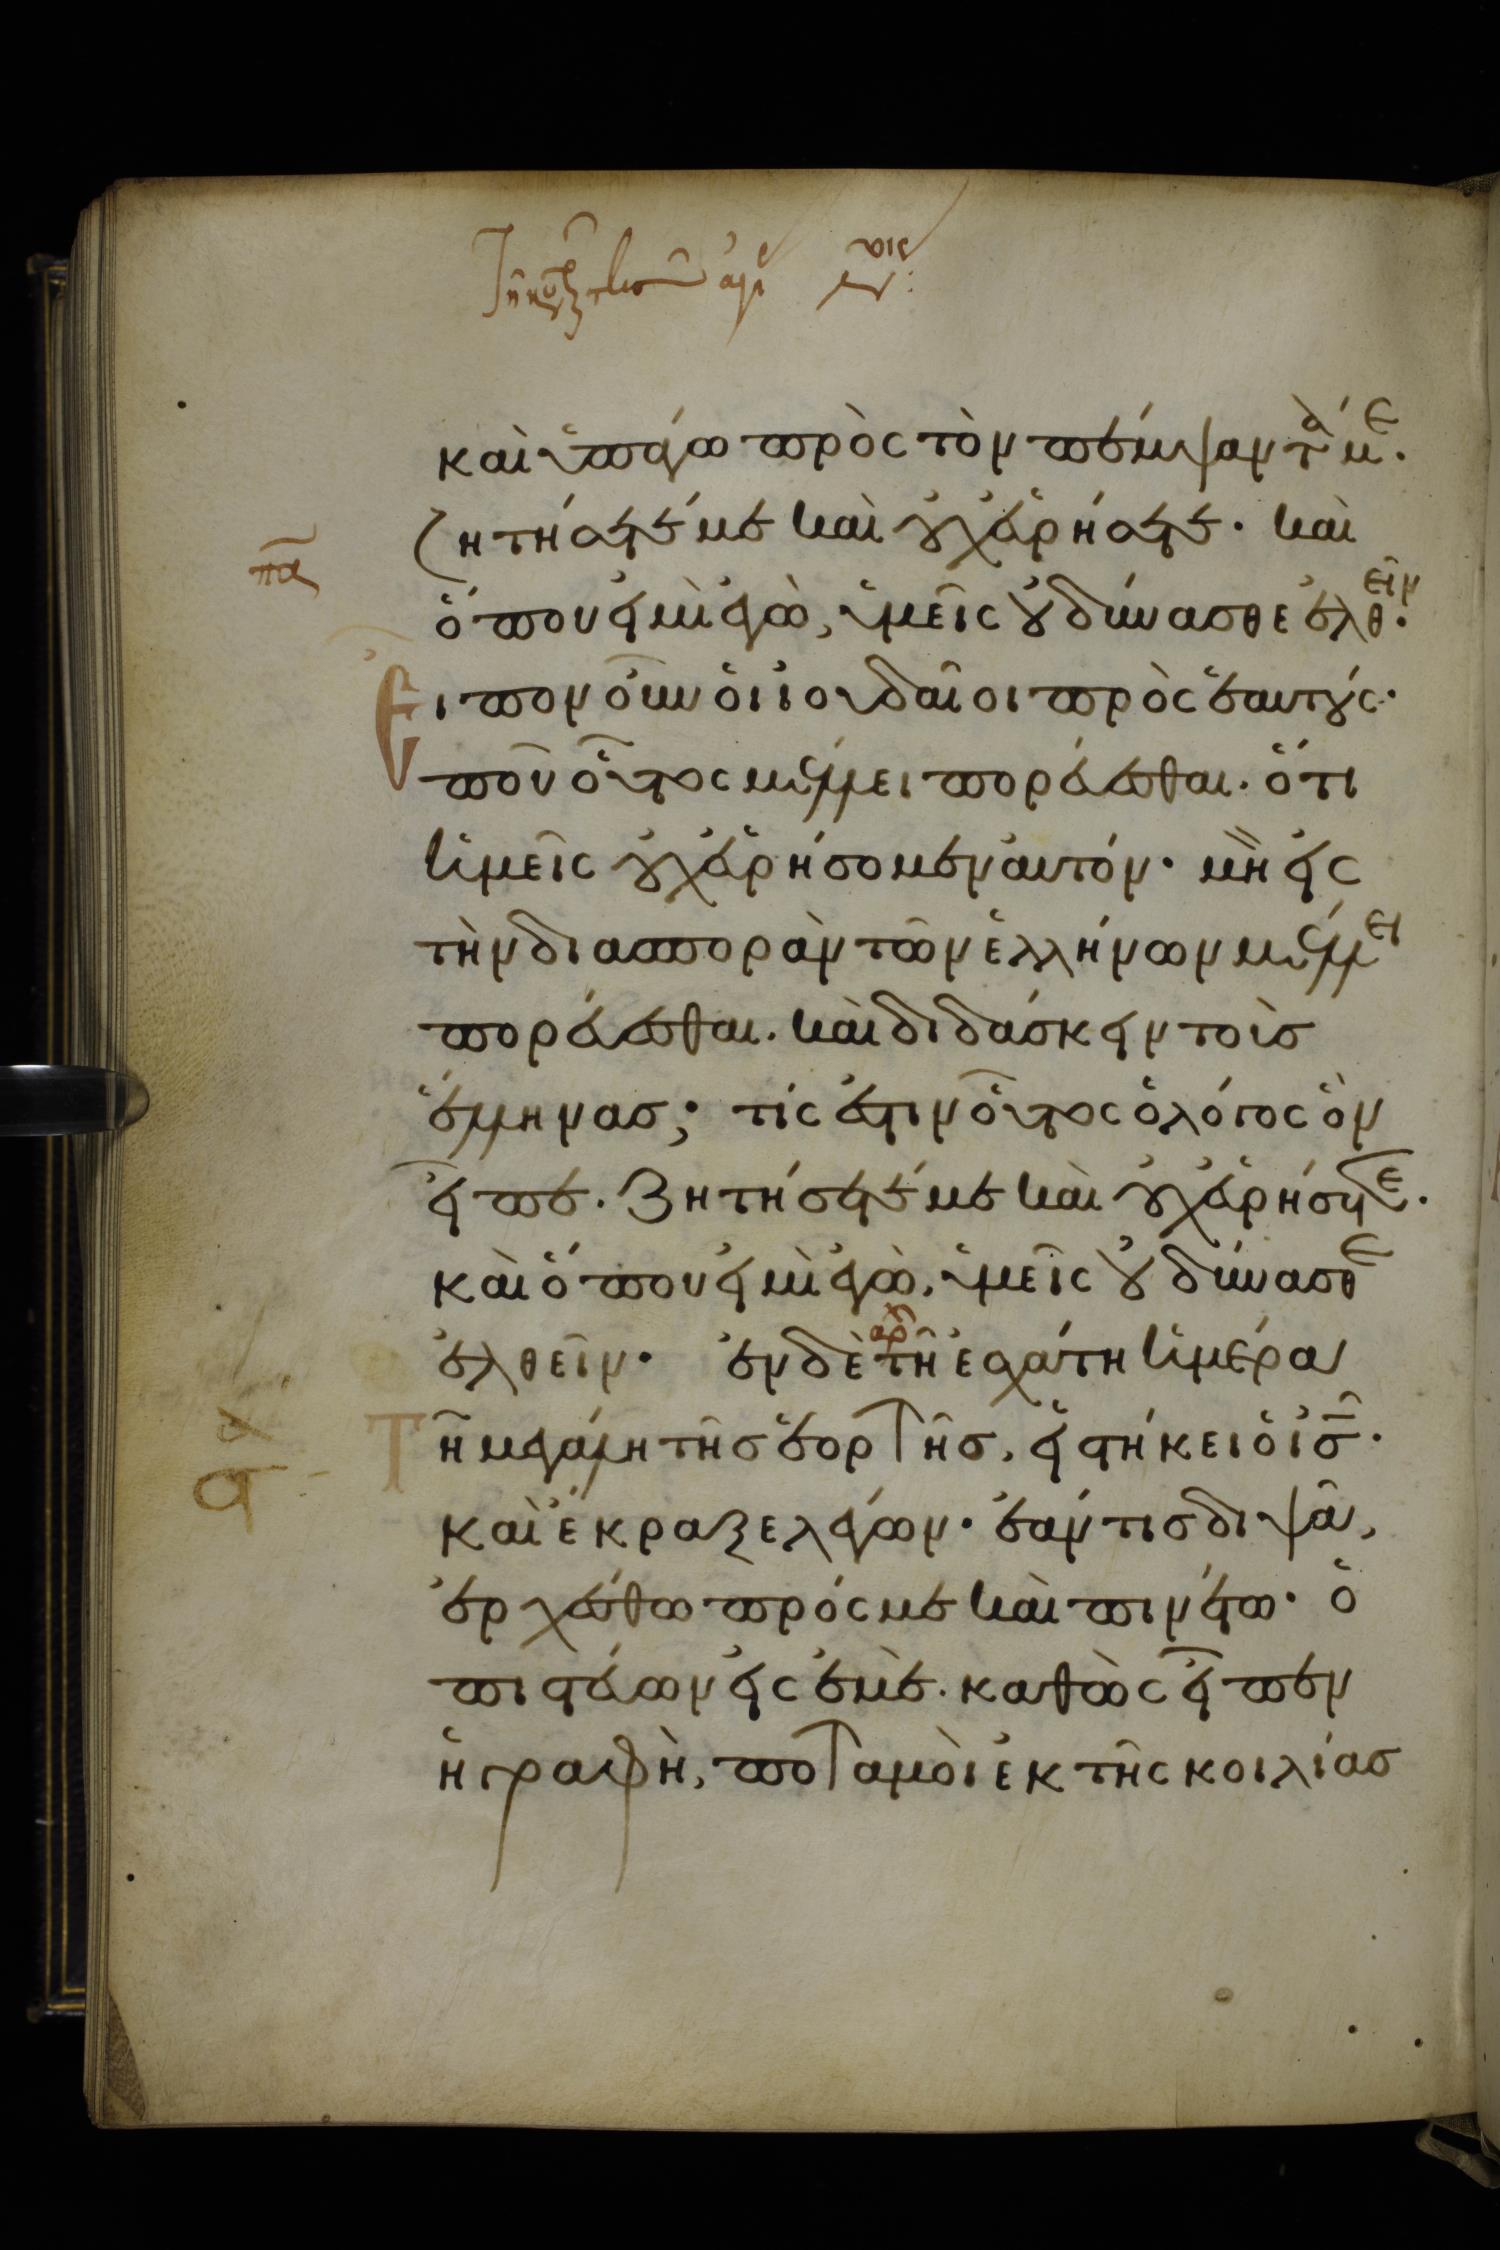 καὶ ὑπάγω πρὸς τὸν πέμψαντά με·
ζητήσετέ με καὶ οὐχ εὑρήσετε· καὶ
πα
ὅπου εἰμὶ ἐγὼ, ὑμεῖς οὐ δύνασθε ἐλθεῖν·
Εἶπον οὖν οἱ ἰουδαῖοι πρὸς ἑαυτούς·
ποῦ οὗτος μέλλει πορεύεσθαι· ὅτι
ἡμεῖς οὐχ εὑρήσομεν αὐτόν· μὴ εἰς
τὴν διασπορὰν τῶν ἑλλήνων μέλλει
πορεύεσθαι· καὶ διδάσκειν τοὺς
ἕλληνας; τίς ἐστιν οὗτος ὁ λόγος ὃν
εἶπε· ζητήσετέ με καὶ οὐχ εὑρήσετε·
καὶ ὅπου εἰμὶ ἐγὼ, ὑμεῖς οὐ δύνασθε
ἐλθεῖν· ἐν δὲ τῇ ἐσχάτῃ ἡμέρα
Τῆ μεγάλη τῆς ἑορτῆς, εἱστήκει ὁ ις·
καὶ ἔκραξε λέγων· ἐάν τις διψᾶ,
ἐρχέσθω πρός με καὶ πινέτω· ὁ
πιστεύων εἰς ἐμὲ· καθὼς εἶπεν
ἡ γραφὴ, ποταμοὶ ἐκ τῆς κοιλίας